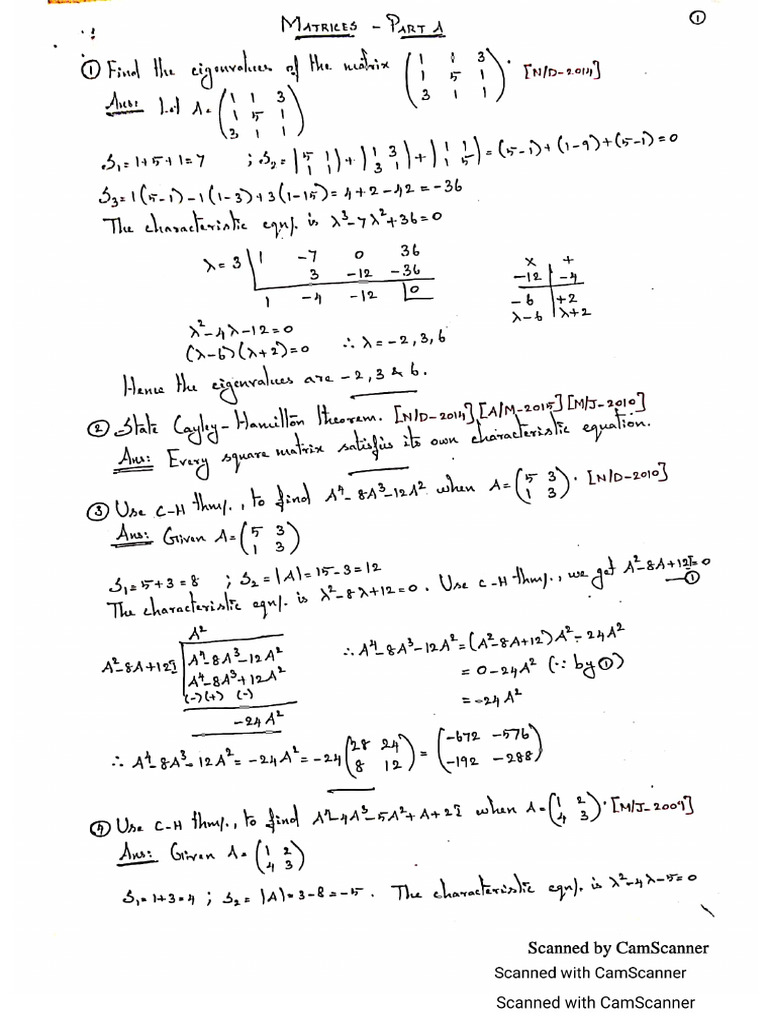 MATRICES - PART A
①
① Find the eigenvalues of the matrix (1 1 3; 1 5 1; 3 1 1). [N/D-2014]
Ans: Let A = (1 1 3; 1 5 1; 3 1 1)
S₁ = 1+5+1 = 7 ; S₂ = |5 1; 1 1| + |1 3; 3 1| + |1 1; 1 5| = (5-1)+(1-9)+(5-1) = 0
S₃ = 1(5-1)-1(1-3)+3(1-15) = 4+2-42 = -36
The characteristic eqn/. is λ³-7λ²+36=0
λ = 3 | 1 -7 0 36
3 -12 -36
1 -4 -12 |0
x | +
-12 | -4
-6 | +2
λ-6 | λ+2
λ²-4λ-12=0
(λ-6)(λ+2)=0 ∴ λ = -2, 3, 6
Hence the eigenvalues are -2, 3 & 6.
② State Cayley-Hamilton theorem. [N/D-2014] [A/M-2015] [M/J-2010]
Ans: Every square matrix satisfies its own characteristic equation.
③ Use C-H thm/., to find A⁴-8A³-12A² when A = (5 3; 1 3). [N/D-2010]
Ans: Given A = (5 3; 1 3)
S₁ = 5+3 = 8 ; S₂ = |A| = 15-3 = 12
The characteristic eqn/. is λ²-8λ+12=0. Use C-H thm/., we get A²-8A+12I=0 —①
A²
A²-8A+12I | A⁴-8A³-12A²
A⁴-8A³+12A²
(-)(+) (-)
-24A²
∴ A⁴-8A³-12A² = (A²-8A+12)A²-24A²
= 0-24A² (∵ by ①)
= -24A²
∴ A⁴-8A³-12A² = -24A² = -24 (28 24; 8 12) = (-672 -576; -192 -288)
④ Use C-H thm/., to find A⁴-4A³-5A²+A+2I when A = (1 2; 4 3). [M/J-2009]
Ans: Given A = (1 2; 4 3)
S₁ = 1+3 = 4 ; S₂ = |A| = 3-8 = -5. The characteristic eqn/. is λ²-4λ-5=0
Scanned by CamScanner
Scanned with CamScanner
Scanned with CamScanner